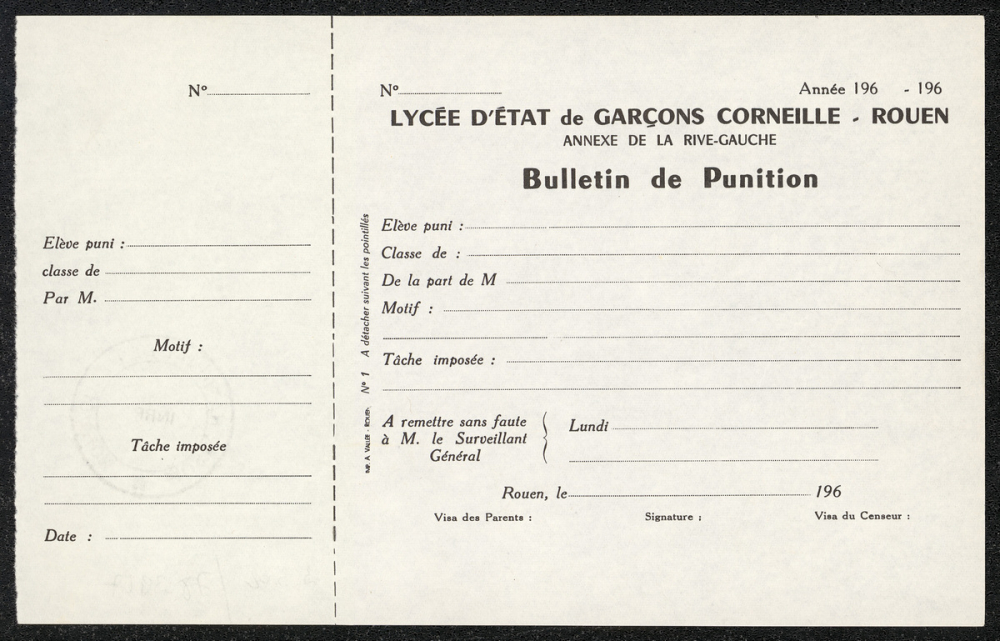 N°
Elève puni :
classe de
Par M.
Motif :
Tâche imposée
Date :
N° 1 A détacher suivant les pointillés
N°
Année 196 - 196
LYCÉE D'ÉTAT de GARÇONS CORNEILLE - ROUEN
ANNEXE DE LA RIVE-GAUCHE
Bulletin de Punition
Elève puni :
Classe de :
De la part de M
Motif :
Tâche imposée :
A remettre sans faute
à M. le Surveillant
Général
Lundi
Rouen, le 196
Visa des Parents :
Signature :
Visa du Censeur :